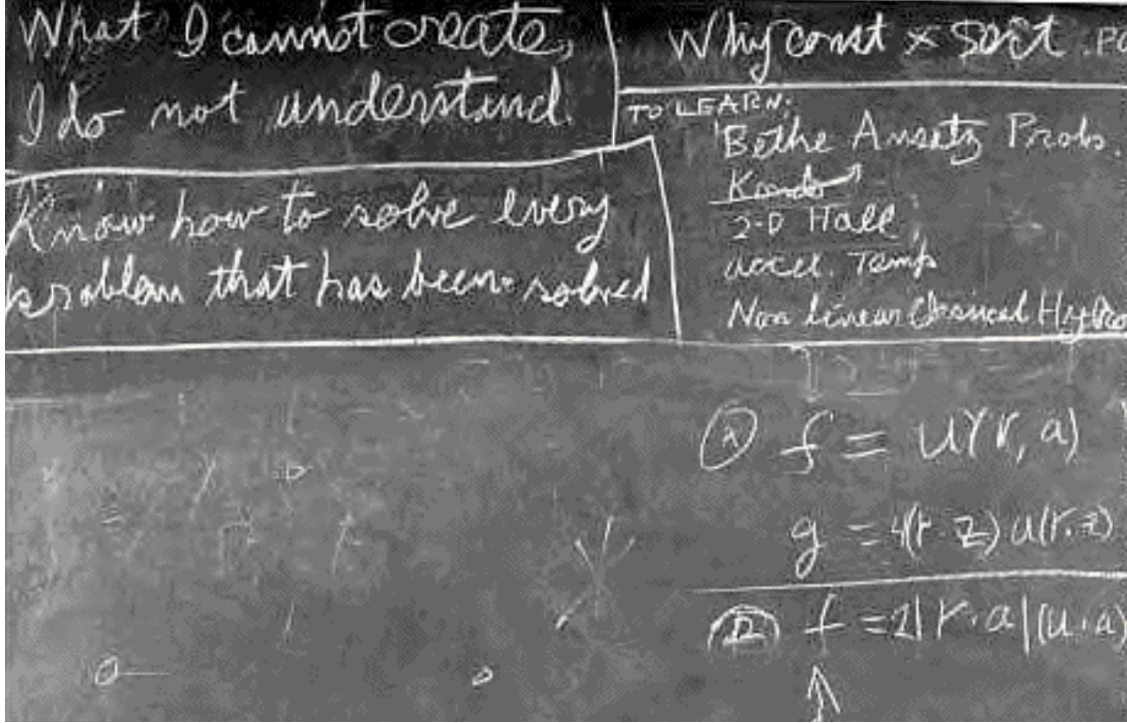 What I cannot create,
I do not understand.
Know how to solve every
problem that has been solved
Why const × sort . PO
TO LEARN:
Bethe Ansatz Probs.
Kondo
2-D Hall
accel. Temp
Non linear Classical Hydro
f = U(r, a)
g = 4(r·z) u(r·z)
f = 2|r·a|(u·a)